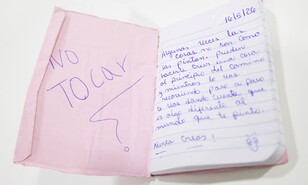 NO
TOCAR
16/8/26
Algunas veces las
cosas no son como
las pintan. Pueden
hacerte creer una cosa
al principio del camino
y mientras lo vas
recorriendo paso a paso
te vas dando cuenta que
es algo diferente al
mundo que te pintó.
Nunca creas!